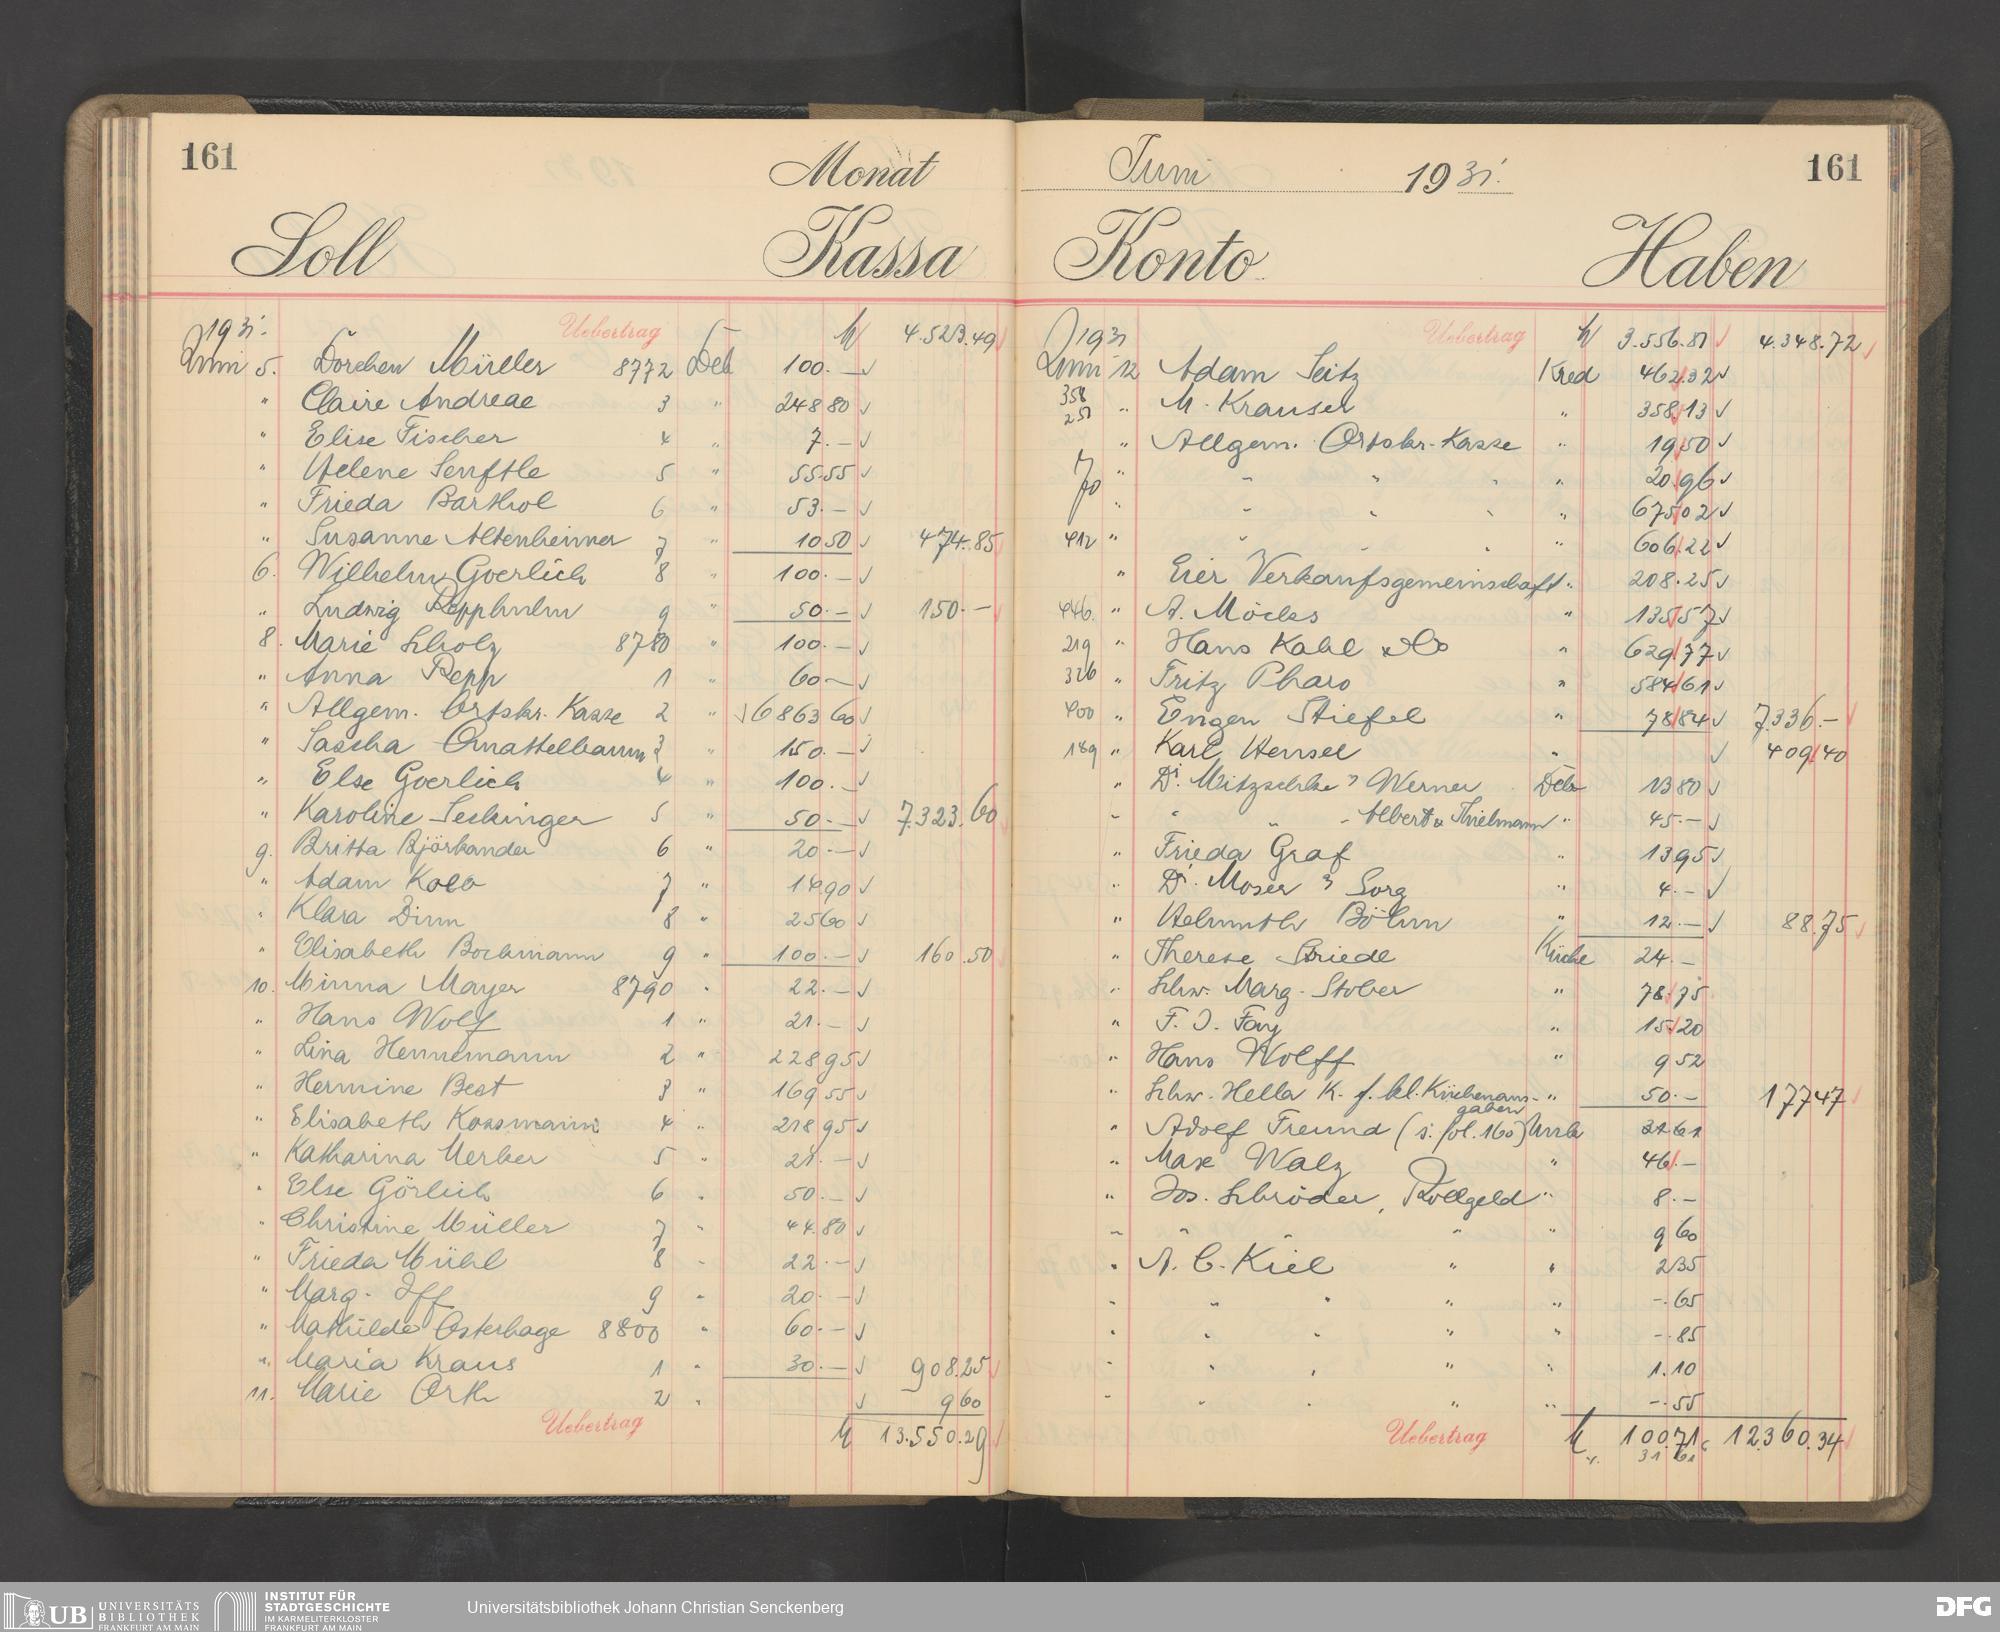 161
Monat
Soll Kassa
1931. Uebertrag M 4.523.49
Juni 5. Dorchen Müller 8772 Deb 100.—
" Claire Andreae 3 " 248 80
" Elise Fischer 4 " 7.—
" Helene Senftle 5 " 55.55
" Frieda Barthol 6 " 53.—
" Susanne Altenheimer 7 " 10 50 474.85
6. Wilhelm Goerlich 8 " 100.—
" Ludwig 9 " 50.— 150.—
8. Marie Scholz 8780 " 100.—
" Anna Repp 1 " 60—
" Allgem. Ortskr. Kasse 2 " 6863 60
" Sascha 3 " 150.—
" Else Goerlich 4 " 100.—
" Karoline 5 " 50.— 7.323.60
9. Britta Björkander 6 " 20.—
" Adam Kolb 7 " 14 90
" Klara 8 " 25 60
" Elisabeth Bockmann 9 " 100.— 160.50
10. Minna Mayer 8790 " 22.—
" Hans Wolf 1 " 21.—
" Lina Hennemann 2 " 228 95
" Hermine Best 3 " 169 55
" Elisabeth Kossmann 4 " 218 95
" Katharina Merker 5 " 21.—
" Else Görlich 6 " 50.—
" Christine Müller 7 " 44.80
" Frieda Mühl 8 " 22.—
" Marg. Iff 9 " 20.—
" Mathilde Osterhage 8800 " 60.—
" Maria Kraus 1 " 30.— 908.25
11. Marie Orth 2 " 9 60
Uebertrag M 13.550.29
161
Juni 1931.
Konto Haben
1931 Uebertrag M 3.556.81 4.348.72
Juni 12 Adam Seitz Kred 462.32
358
251 " M. Krauser " 358.13
" Allgem. Ortskr.-Kasse " 19 50
70 " " " " " 20.96
" " " " " 675 02
412 " " " " " 606.22
" Eier Verkaufsgemeinschaft " 208.25
446. " A. Möcks " 135 57
219 " Hans Kahl & Co " 629 77
326 " Fritz Pharo " 584 61
400 " Eugen Stiefel " 78 84 7336.—
189 " Karl Hensel " 409 40
" Dr. Mitzschke & Werner Deb 13 80
" " " Albert & Thielmann " 45.—
" Frieda Graf " 13 95
" Dr. Moser & Sorg " 4.—
" Helmuth Böhm " 12.— 88.75
" Therese Küche 24.—
" Schw. Marg. Stober " 78.75
" F. J. Fay " 15.20
" Hans Wolff " 9 52
" Schw. Hella K. f. kl. Küchenaus- " 50.— 177 47
gaben
" Adolf Freund (s. fol. 160) Unk 31 61
" Max Walz " 46.—
" Jos. Schröder, Rollgeld " 8.—
" " " " " 9 60
" A. C. Kiel " " 2 35
" " " " " —.65
" " " " " —.85
" " " " " 1.10
" " " " " —.55
Uebertrag M 100.71 12360.34
31 61
UB UNIVERSITÄTS
BIBLIOTHEK
FRANKFURT AM MAIN
INSTITUT FÜR
STADTGESCHICHTE
IM KARMELITERKLOSTER
FRANKFURT AM MAIN
Universitätsbibliothek Johann Christian Senckenberg
DFG